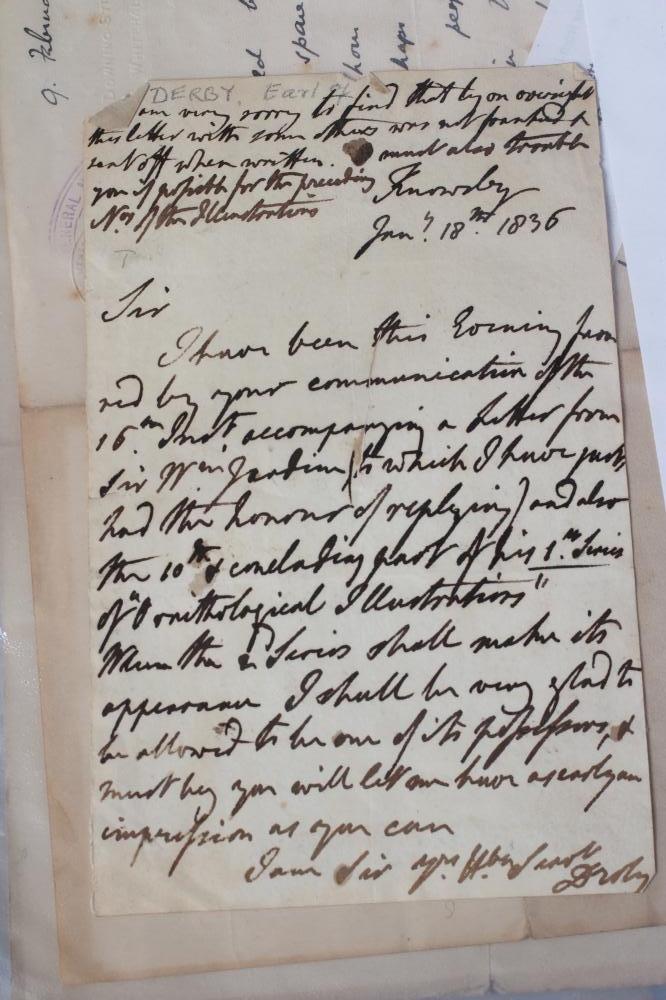 9. Februa
DOWNING ST
spare
thom
haps
DERBY, Earl of
am very sorry to find that by an oversight
this letter with some others was not franked &
sent off when written. I must also trouble
you if possible for the preceding
Nos of the Illustrations
Knowsley
Jany. 18th 1836
Sir
I have been this Evening favou
red by your communication of the
16th Inst accompanying a Letter from
Sir Wm Jardine (to which I have just
had the honour of replying) and also
the 10th & concluding part of his 1st Series
of "Ornithological Illustrations"
When the 2d Series shall make its
appearance I shall be very glad to
be allowed to be one of its possessors, &
must beg you will let me have as early an
impression as you can
I am Sir yrs. Hble Servt
Derby